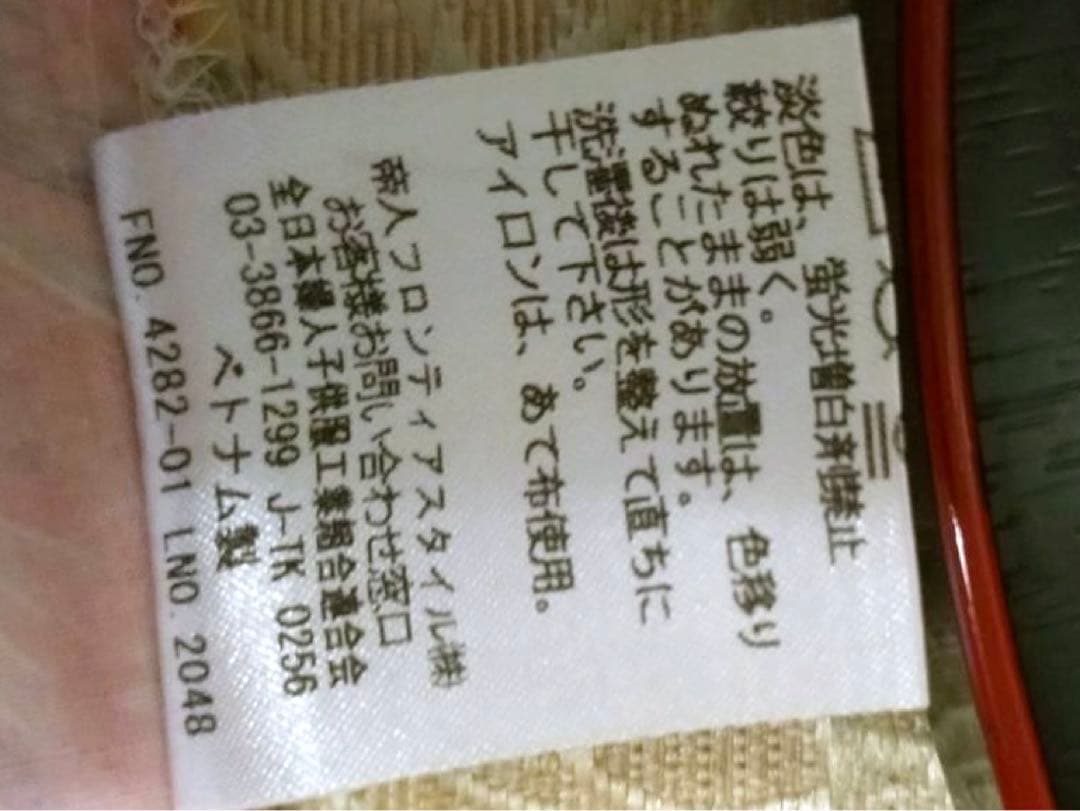 淡色は、蛍光増白剤禁止
絞りは弱く。
ぬれたままの放置は、色移り
することがあります。
洗濯後は形を整えて直ちに
干して下さい。
アイロンは、あて布使用。
帝人フロンティアスタイル㈱
お客様お問い合わせ窓口
全日本婦人子供服工業組合連合会
03-3866-1299 J-TK 0256
ベトナム製
FNO. 4282-01 LNO. 2048